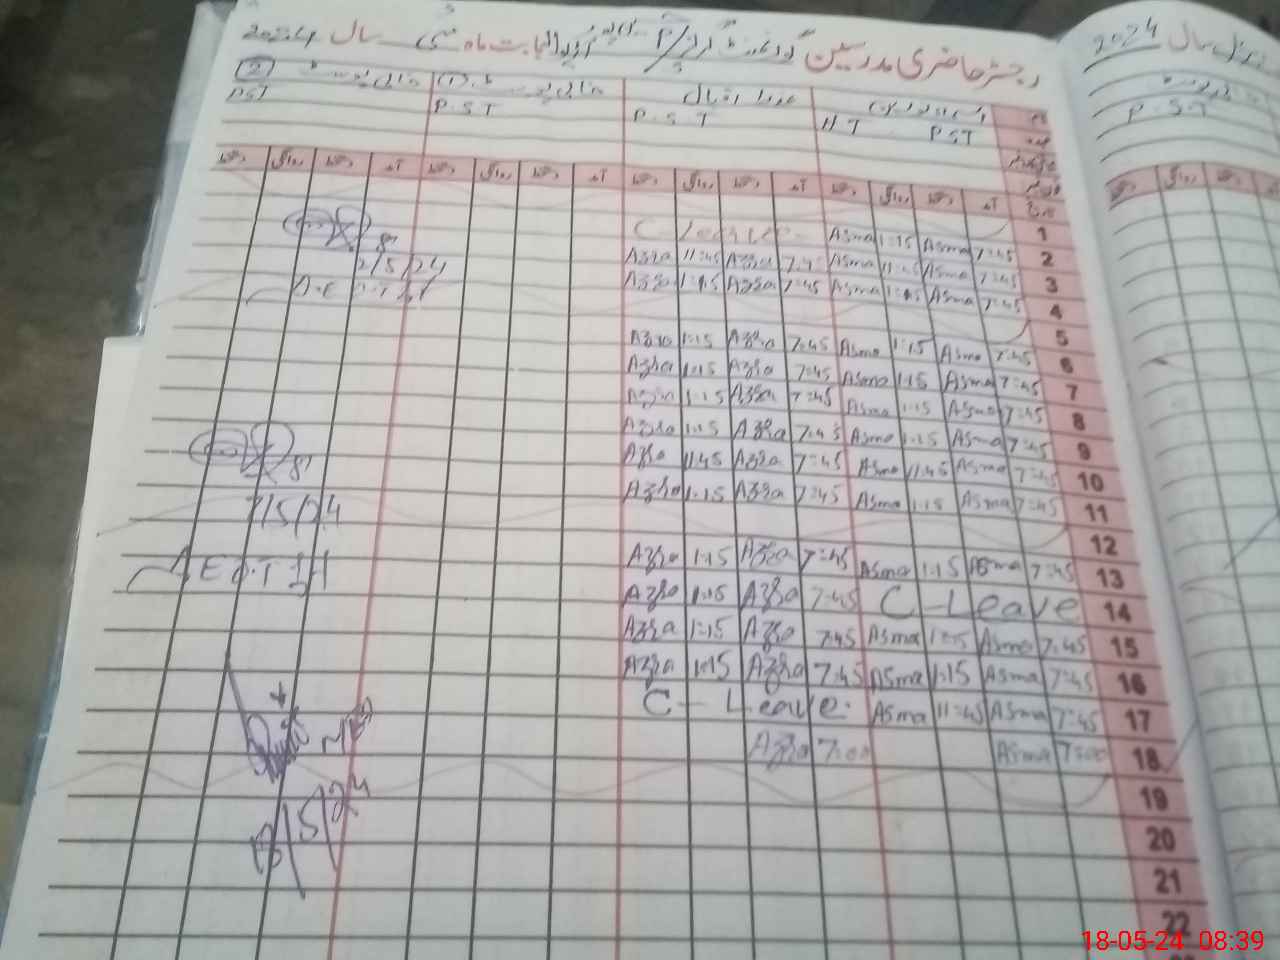 رجسٹر حاضری مدرسین گورنمنٹ گرلز بابت ماہ مئی سال 2024
نام عذرا اقبال خالی پوسٹ (1) خالی پوسٹ (2)
عہدہ H.T PST P.S.T P.S.T PST
تاریخ آمد دستخط روانگی دستخط آمد دستخط روانگی دستخط آمد دستخط روانگی دستخط آمد دستخط روانگی دستخط
1
2 7:45 Asma 1:15 Asma C-Leave
3 7:45 Asma 11:45 Asma 7:45 Azra 11:45 Azra
4 7:45 Asma 1:15 Asma 7:45 Azra 1:15 Azra
5
6 7:45 Asma 1:15 Asma 7:45 Azra 1:15 Azra
7 7:45 Asma 1:15 Asma 7:45 Azra 1:15 Azra
8 7:45 Asma 1:15 Asma 7:45 Azra 1:15 Azra
9 7:45 Asma 1:15 Asma 7:45 Azra 1:15 Azra
10 7:45 Asma 11:45 Asma 7:45 Azra 11:45 Azra
11 7:45 Asma 1:15 Asma 7:45 Azra 1:15 Azra
12
13 7:45 Asma 1:15 Asma 7:45 Azra 1:15 Azra
14 C-Leave 7:45 Azra 1:15 Azra
15 7:45 Asma 1:15 Asma 7:45 Azra 1:15 Azra
16 7:45 Asma 1:15 Asma 7:45 Azra 1:15 Azra
17 7:45 Asma 11:45 Asma C-Leave
18 7:00 Asma 7:00 Azra
19
20
21
22
2/5/24
7/5/24
18/5/24
سال 2024
P.S.T
18-05-24 08:39